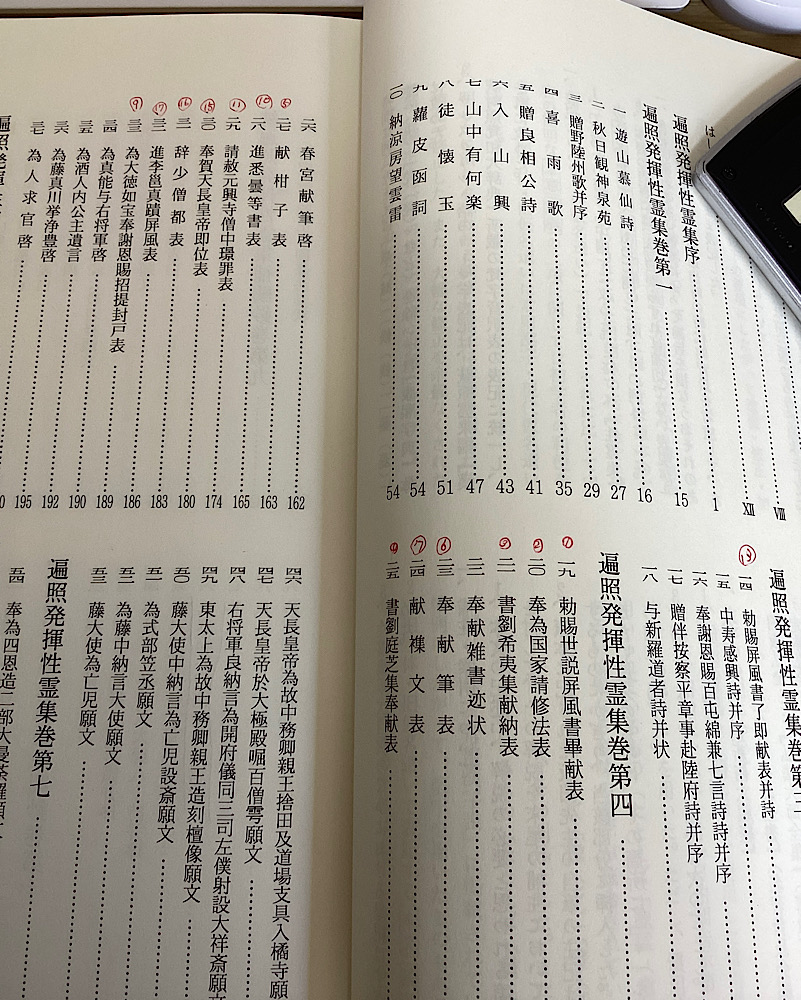 は
Ⅷ
Ⅻ
1
遍照発揮性霊集序 15
遍照発揮性霊集巻第一 16
一 遊山慕仙詩 27
二 秋日観神泉苑 29
三 贈野陸州歌并序 35
四 喜雨歌 41
五 贈良相公詩 43
六 入山興 47
七 山中有何楽 51
八 徒懐玉 54
九 蘿皮函詞 54
一〇 納涼房望雲雷
⑬ 一四 勅賜屏風書了即献表并詩
一五 中寿感興詩并序
一六 奉謝恩賜百屯綿兼七言詩詩并序
一七 贈伴按察平章事赴陸府詩并序
一八 与新羅道者詩并状
遍照発揮性霊集巻第四
① 一九 勅賜世説屏風書畢献表
② 二〇 奉為国家請修法表
③ 二一 書劉希夷集献納表
二二 奉献雑書迹状
⑥ 二三 奉献筆表
⑦ 二四 献襍文表
④ 二五 書劉庭芝集奉献表
二六 春宮献筆啓 162
⑧ 二七 献柑子表 163
⑩ 二八 進悉曇等書表 165
⑪ 二九 請赦元興寺僧中璟罪表 174
⑮ 三〇 奉賀天長皇帝即位表 180
⑯ 三一 辞少僧都表 183
⑰ 三二 進李邕真蹟屏風表 186
⑨ 三三 為大徳如宝奉謝恩賜招提封戸表 189
三四 為真能与右将軍啓 190
三五 為酒人内公主遺言 192
三六 為藤真川挙浄豊啓 195
三七 為人求官啓
遍照発揮
四六 天長皇帝為故中務卿親王捨田及道場支具入橘寺願
四七 天長皇帝於大極殿嘱百僧雩願文
四八 右将軍良納言為開府儀同三司左僕射設大祥斎願文
四九 東太上為故中務卿親王造刻檀像願文
五〇 藤大使中納言為亡児設斎願文
五一 為式部笠丞願文
五二 為藤中納言大使願文
五三 藤大使為亡児願文
遍照発揮性霊集巻第七
五四 奉為四恩造二部大曼荼羅願